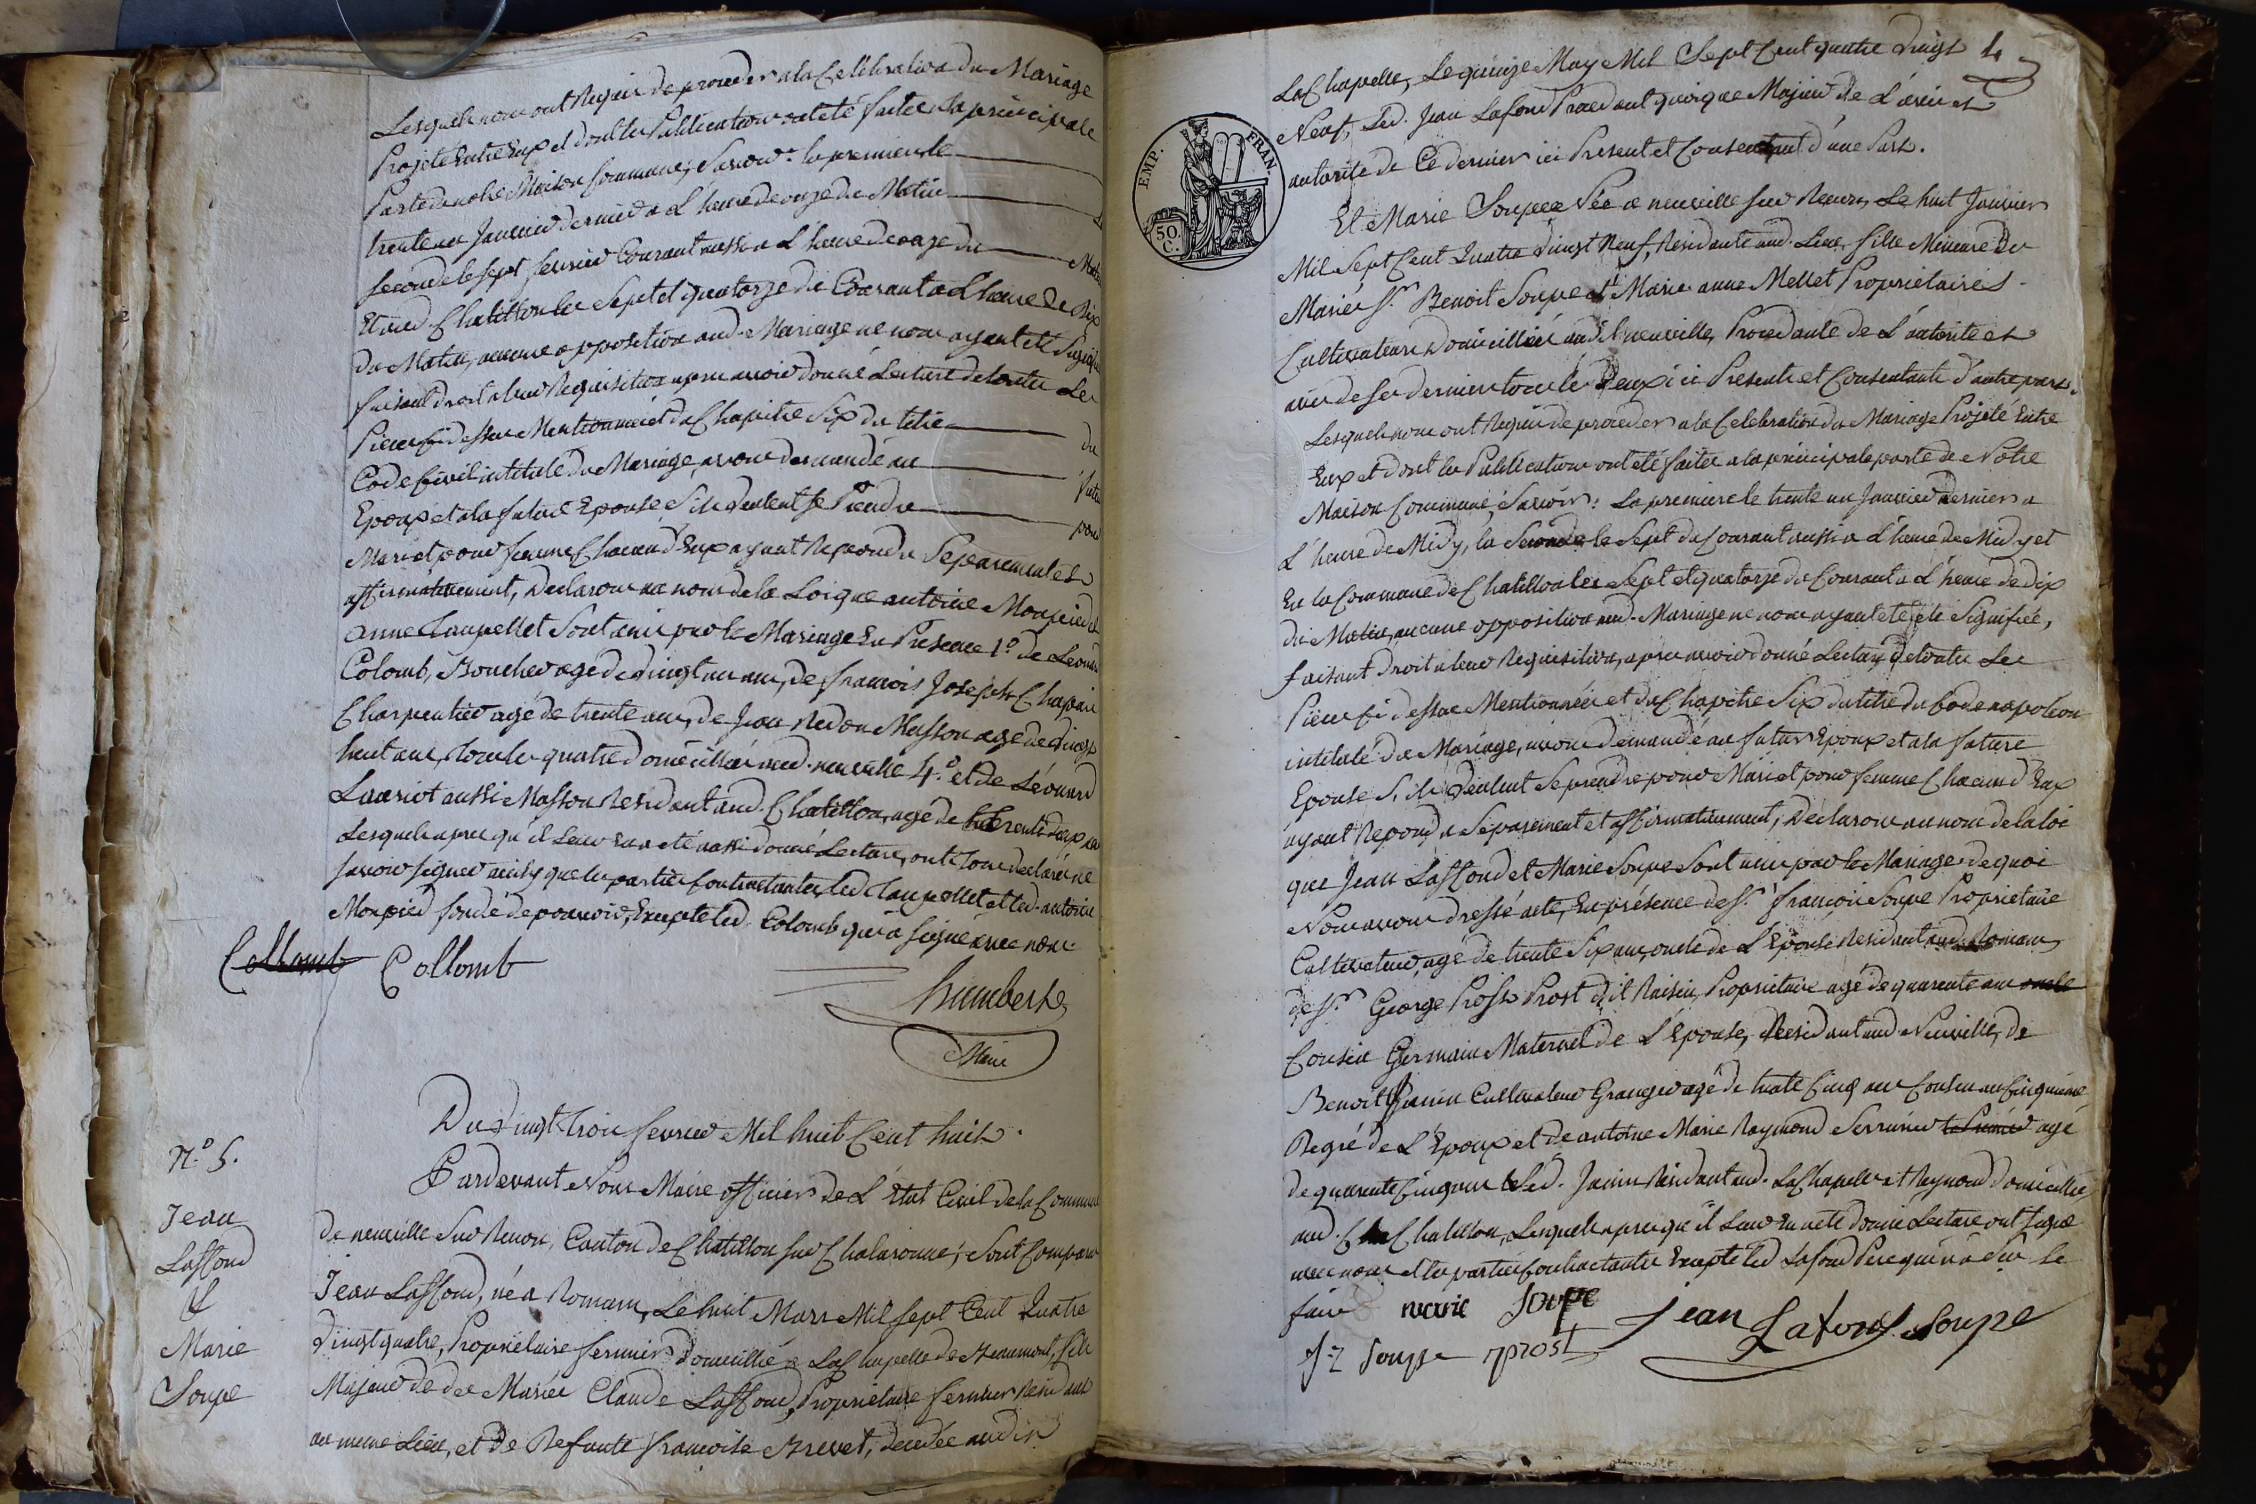 Lesquels nous ont Requis de proceder a la Celebration du Mariage
Projeté Entre Eux et dont les Publications ont été faites a la principale
Porte de notre Maison Commune; Savoir: la premiere le
trente un Janvier dernier a L'heure de onze du Matin
seconde le sept fevrier Courant aussi a L'heure de onze du Matin
Et aud Chatillon les Sept et quatorze du Courant a L'heure de Dix
Du Matin, aucune opposition aud. Mariage ne nous ayant été Signifiée
faisant droit a leur Requisition apres avoir donné Lecture de toutes Les
Pieces Ci dessus Mentionnées et du Chapitre Six du titre du
Code Civil intitulé du Mariage, avons demandé au futur
Epoux et a la future Epouse S'ils veulent se Prendre pour
Mari et pour femme Chacun d'Eux ayant Repondu Separement et
affirmativement, Declarons au nom de la Loi que antoine Monpied et
anne Laupellet Sont unis par le Mariage En Presence 1.º de Leonard
Colomb, Boucher agé de vingt un ans, de francois Joseph Chapui
Charpentier agé de trente ans, de Jean Redon Masson agé de vingt
huit ans, tous les quatre domicilliés aud. neuville 4.º et de Léonard
Lauriot aussi Masson Residant aud. Chatillon, agé de trente deux ans
Lesquels apres qu'il Leur En a été aussi donné Lecture, ont tous declaré ne
savoir signer ainsy que les parties Contractantes, led Laupellet et led. antoine
Monpied fondé de pouvoir, Excepté led. Colomb qui a signé avec nous
Collomb Collomb
humbert
Maire
Du Vingt trois fevrier Mil huit Cent huit.
N.º 5.
Pardevant Nous Maire officier de L'Etat Civil de la Commune
de neuville Sur Renon, Canton de Chatillon sur Chalaronne; Sont Comparus
Jean
Laffond
&
Marie
Soupe
Jean Laffond, né a Romans, Le huit Mars Mil sept Cent Quatre
Vingt quatre, Propriétaire fermier domicillié a La Chapelle de Beaumont, fils
Majeur de des Mariés Claude Laffond, Propriétaire fermier Residant
au meme Lieu, et de Defunte francoise Brevet, decedée audit
La Chapelle, Le quinze May Mil Sept Cent quatre Vingt 4
Neuf, Led. Jean Lafond Procedant quoique Majeur de L'avis et
autorité de Ce dernier ici Present et Consentant d'une Part.
EMP. FRAN.
50 C.
Et Marie Soupe Née a neuville sur Renon, Le huit Janvier
Mil Sept Cent Quatre Vingt Neuf, Residante aud. Lieu, fille Mineure Des
Mariés S.r Benoit Soupe et Marie anne Mellet Propriétaires
Cultivateurs Domicilliés aud. neuville, Procedante de L'autorité et
avis de Ses derniers tous les Deux ici Presents et Consentants d'autre part.
Lesquels nous ont Requis de proceder a la Celebration du Mariage Projeté Entre
Eux et dont les Publications ont été faites a la principale porte de Notre
Maison Commune, Savoir: La premiere le trente un Janvier dernier a
L'heure de Midy, la Seconde le Sept du Courant aussi a L'heure de Midy et
En la Commune de Chatillon les Sept et quatorze du Courant a L'heure de dix
du Matin, aucune opposition aud. Mariage ne nous ayant été Signifiée,
faisant Droit a leur Requisition, apres avoir donné Lecture de toutes Les
Pieces Ci dessus Mentionnées et du Chapitre Six du titre du Code napoleon
intitulé du Mariage, avons demandé au futur Epoux et a la future
Epouse S'ils Veulent Se prendre pour Mari et pour femme Chacun d'Eux
ayant Repondu Separement et affirmativement, Declarons au nom de la loi
que Jean Laffond et Marie Soupe Sont unis par le Mariage de quoi
Nous avons dressé acte, En présence de S.r francois Soupe Propriétaire
Cultivateur, agé de trente Six ans, oncle de L'Epouse Residant aud. Romans
de S.r George Prost dit Raisin, Propriétaire agé de quarante ans oncle
Cousin Germain Maternel de L'Epouse, Residant aud Neuville, de
Benoit Janin Cultivateur Granger agé de trente Cinq ans Cousin au Cinquieme
Degré de L'Epoux et de antoine Marie Raymond Serrurier agé
de quarante Cinq ans Led. Janin Residant aud. La Chapelle et Reymond domicillié
aud. Chatillon, Lesquels apres qu'il Leur En a été donné Lecture ont signé
avec nous et les parties Contractantes Excepté led Lafond Pere qui n'a sçu le
faire marie Soupe
jean Lafond Soupe
f z Souppe prost